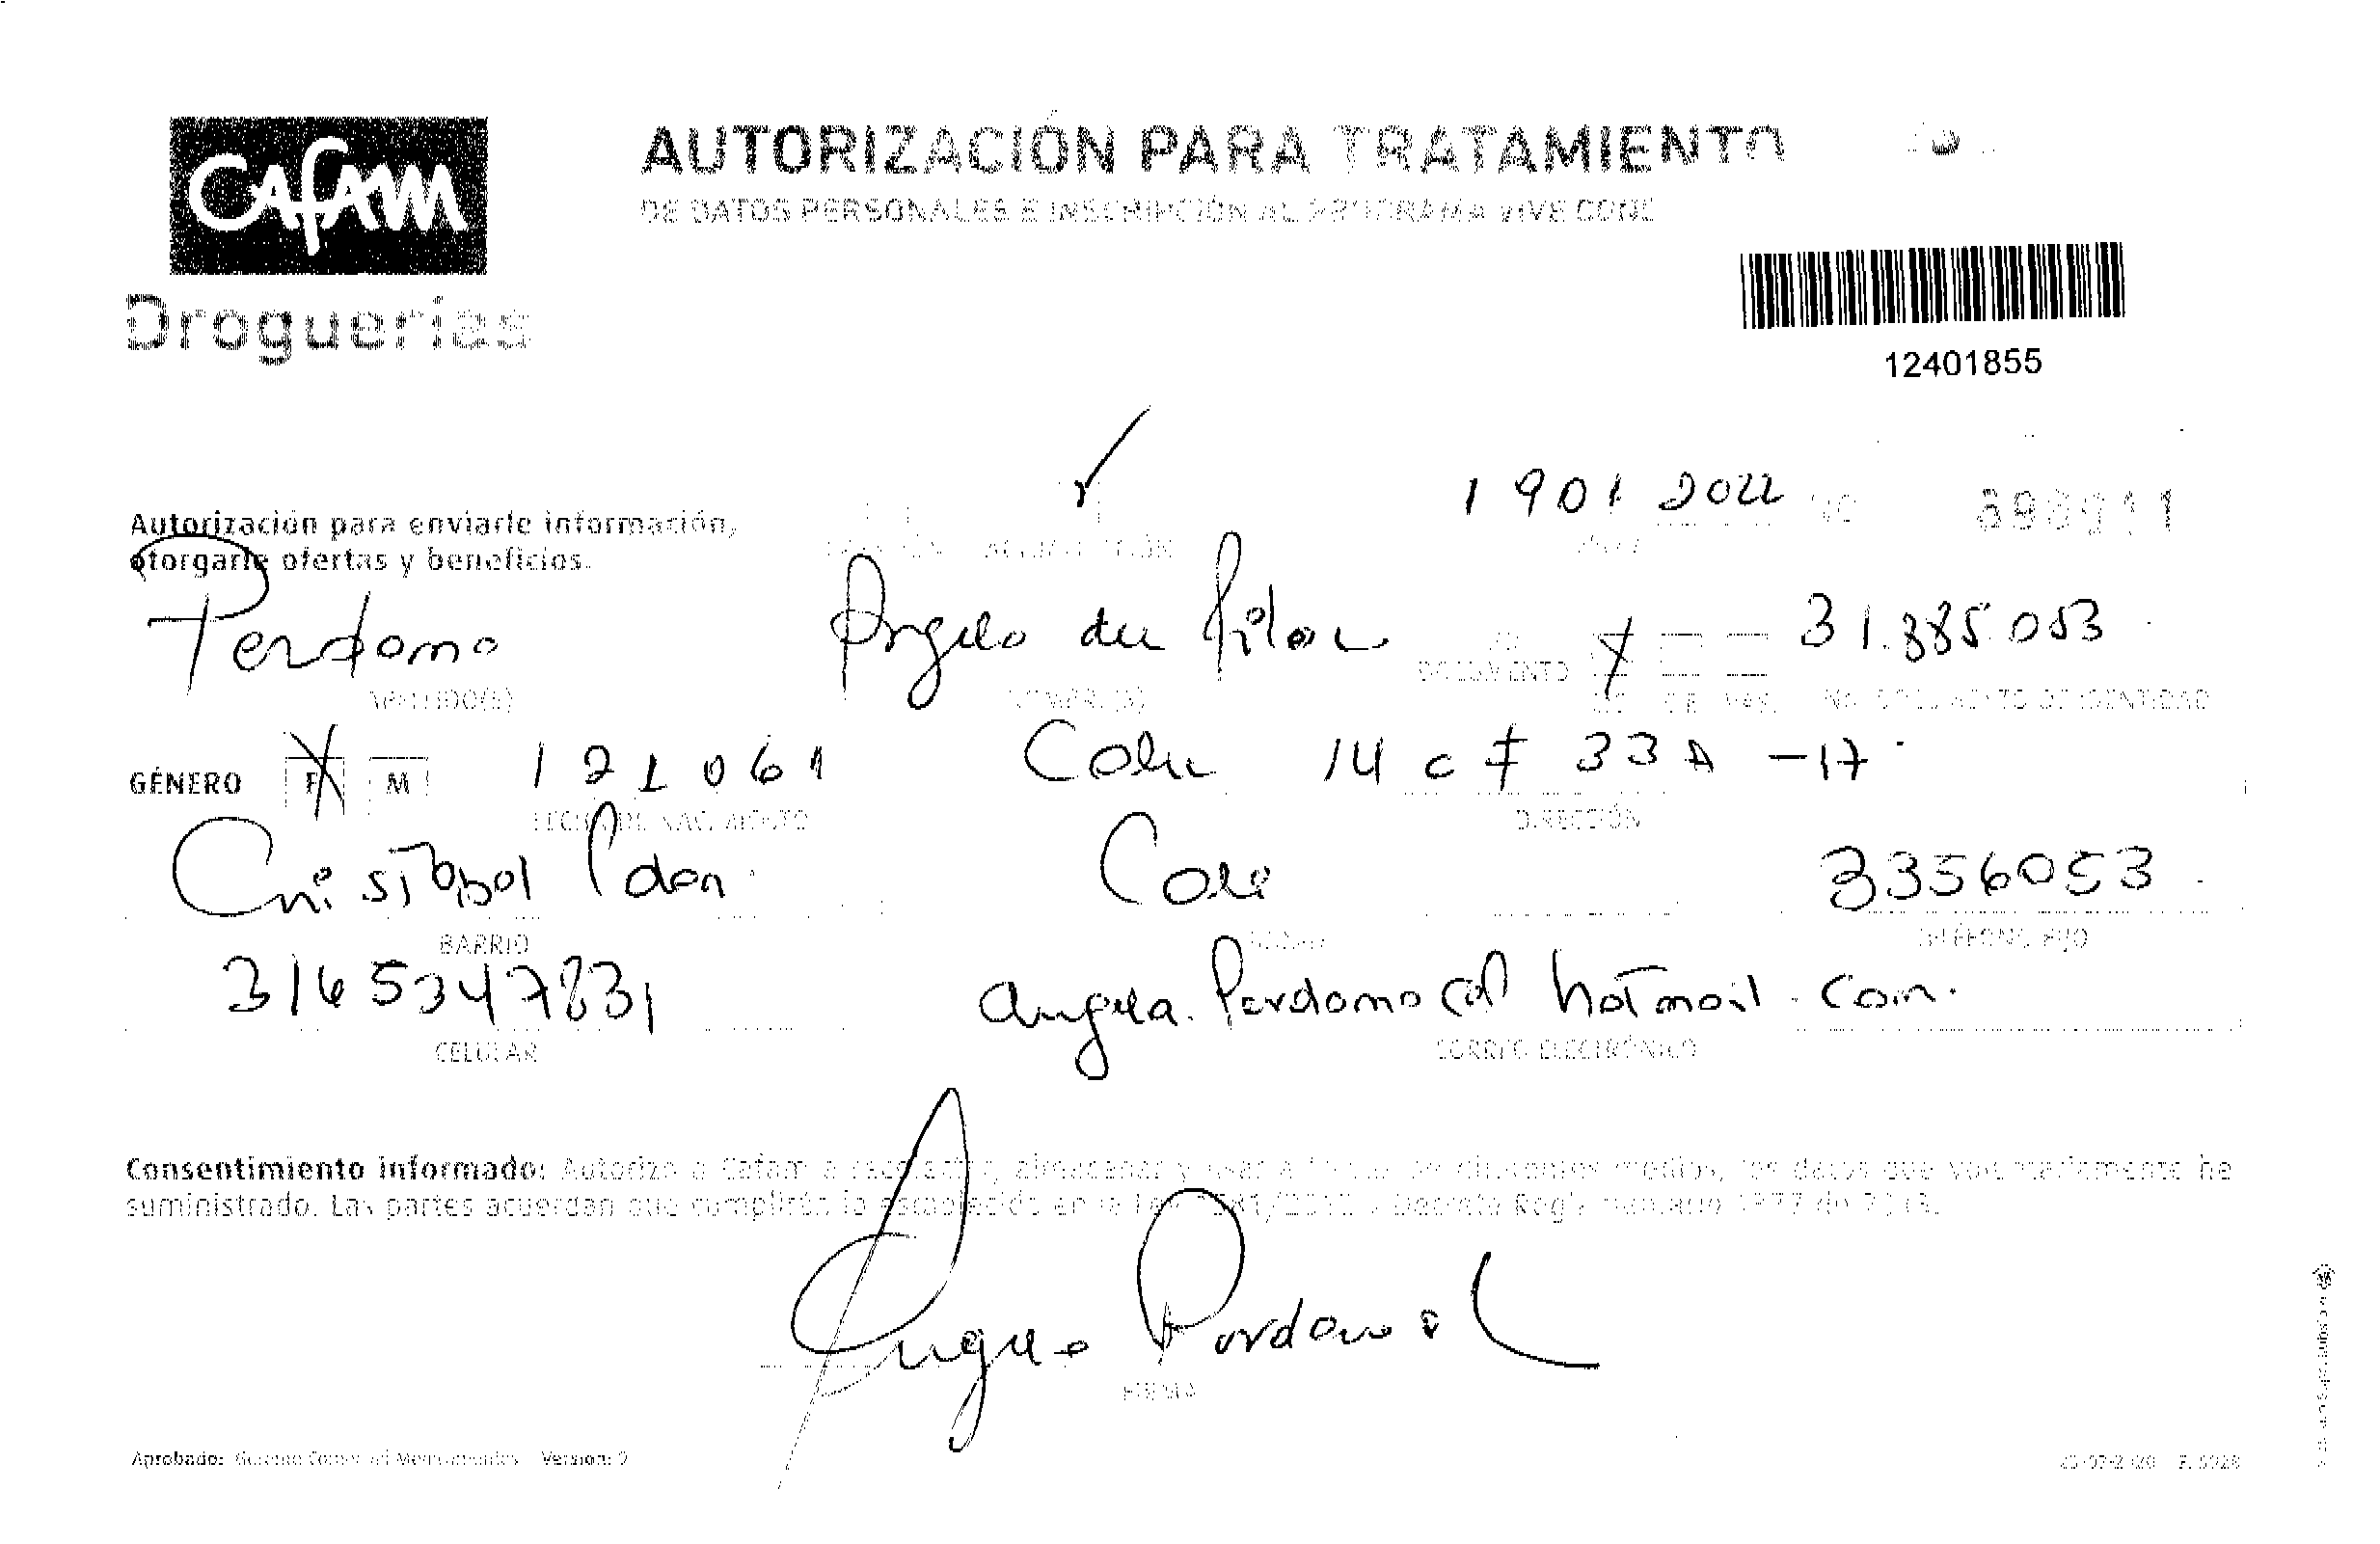 Cafam
Droguerías
AUTORIZACIÓN PARA TRATAMIENTO
DE DATOS PERSONALES E INSCRIPCIÓN AL PROGRAMA VIVE CONE
12401855
1 9 0 1 2022
Autorización para enviarle información,
otorgarle ofertas y beneficios.
Perdomo
Angela del Pilar
31.885.053
APELLIDO(S)
NOMBRE(S)
DOCUMENTO
No. DOCUMENTO DE IDENTIDAD
GÉNERO F M
1 2 1 0 6 1
Calle 14 C # 33 A - 17
FECHA DE NACIMIENTO
DIRECCIÓN
Cristobal Colon
Cali
3356053
BARRIO
CIUDAD
TELÉFONO FIJO
3165347831
angela.Perdomo@hotmail.com.
CELULAR
CORREO ELECTRÓNICO
Consentimiento informado: Autorizo a Cafam a recolectar, almacenar y usar a través de diferentes medios, los datos que voluntariamente he
suministrado. Las partes acuerdan que cumplirán lo establecido en la Ley 1581/2012 y Decreto Reglamentario 1377 de 2013.
Angela Perdomo
FIRMA
Aprobado: Gerente Comercial Medicamentos Version: 0